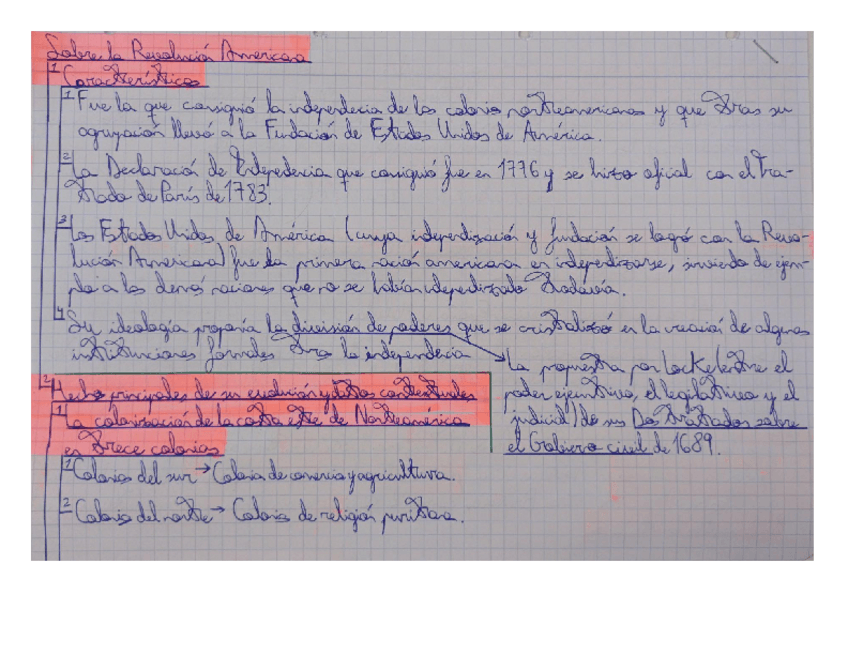 Sobre la Revolución Americana
1 Características
1 Fue la que consiguió la independencia de las colonias norteamericanas y que tras su
agrupación llevó a la Fundación de Estados Unidos de América.
2 La Declaración de Independencia que consiguió fue en 1776 y se hizo oficial con el Tra-
tado de París de 1783.
3 Los Estados Unidos de América (cuya independización y fundación se logó con la Revo-
lución Americana) fue la primera nación americana en independizarse, sirviendo de ejem-
plo a las demás naciones que no se habían independizado todavía.
4 Su ideología proponía la división de poderes que se cristalizó en la creación de algunas
instituciones formales tras la independencia
La propuesta por Locke (entre el
poder ejecutivo, el legislativo y el
judicial) de sus Dos Tratados sobre
el Gobierno civil de 1689.
2 Hechos principales de su evolución y datos contextuales
1 La colonización de la costa este de Norteamérica
en trece colonias
1 Colonias del sur → Colonia de comercio y agricultura.
2 Colonias del norte → Colonia de religión puritana.